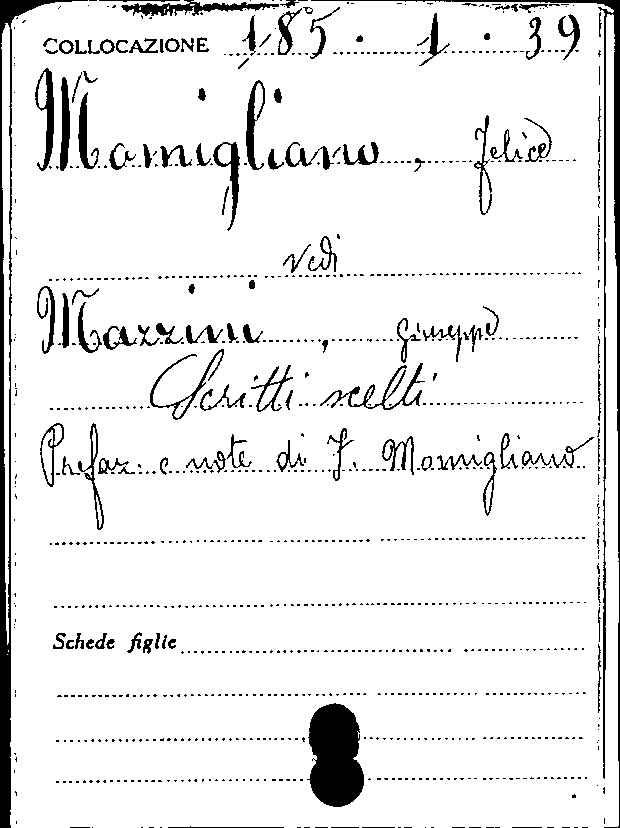 COLLOCAZIONE 185 · 1 · 39
Momigliano, Felice
Vedi
Mazzini, Giuseppe
Scritti scelti
Prefaz. e note di F. Momigliano
Schede figlie